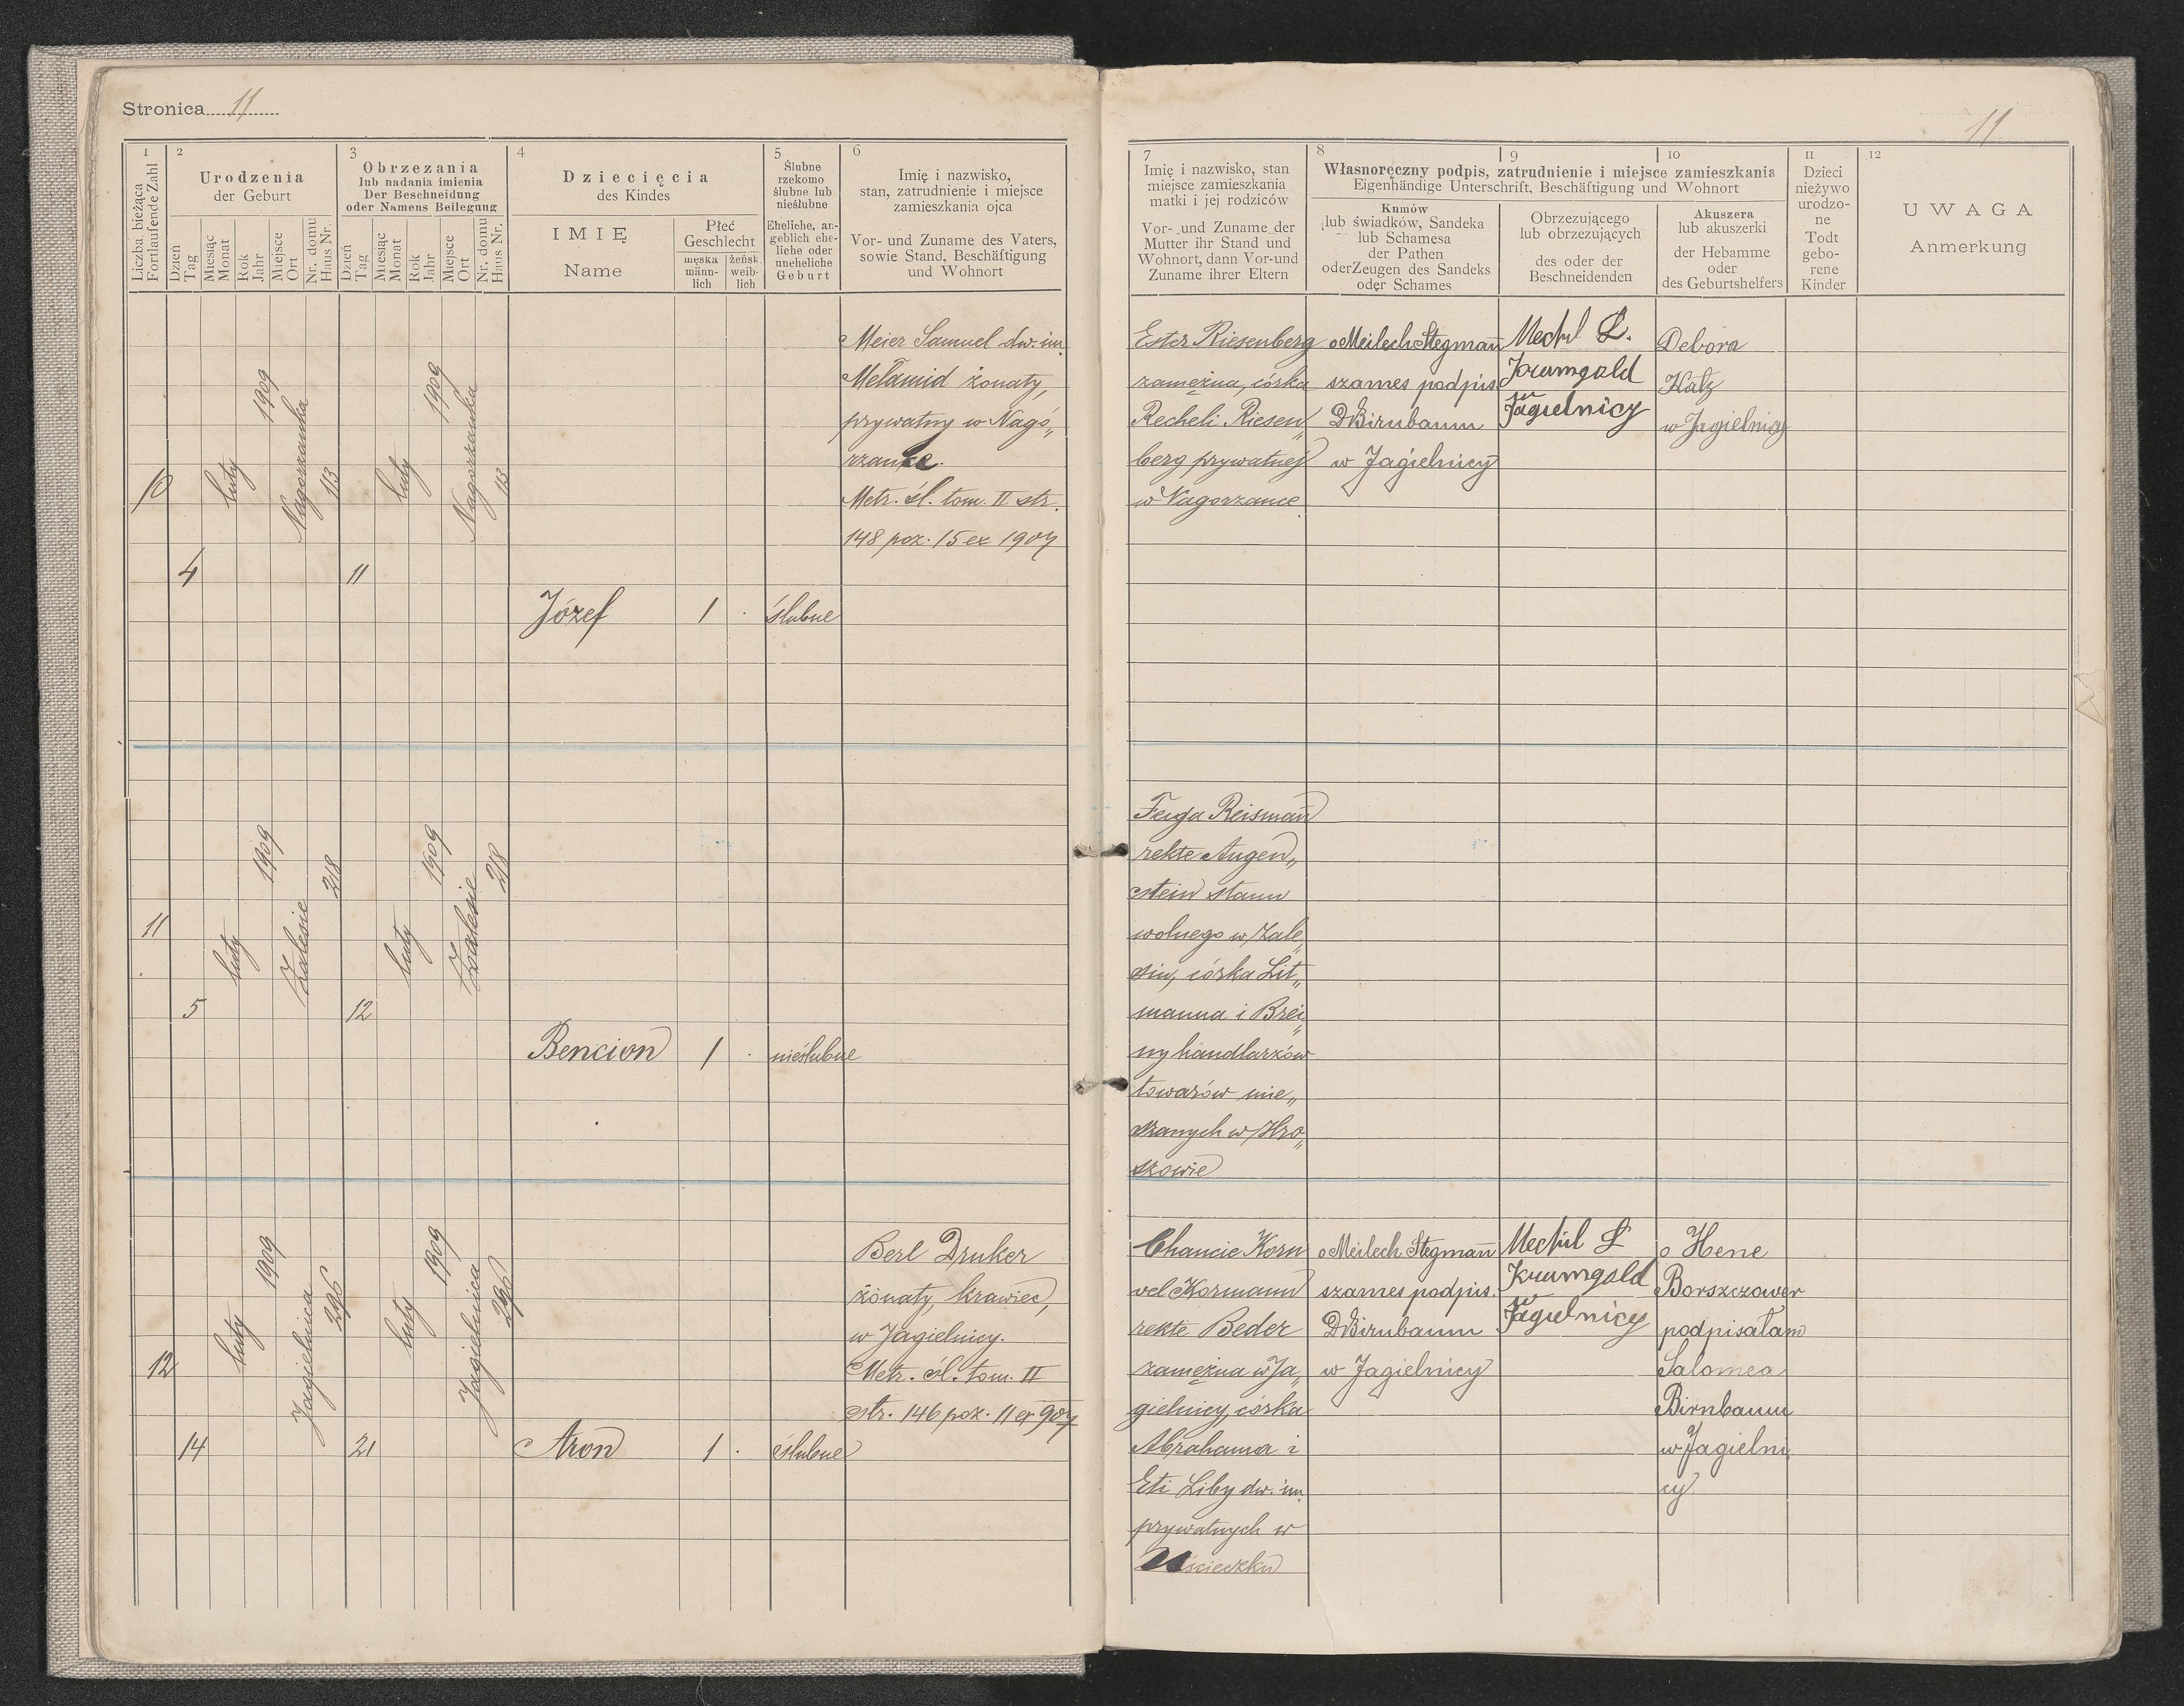 Stronica 11
11
1
Liczba bieżąca
Fortlaufende Zahl
2
Urodzenia
der Geburt
Dzień
Tag
Miesiąc
Monat
Rok
Jahr
Miejsce
Ort
Nr. domu
Haus Nr.
3
Obrzezania
lub nadania imienia
Der Beschneidung
oder Namens Beilegung
Dzień
Tag
Miesiąc
Monat
Rok
Jahr
Miejsce
Ort
Nr. domu
Haus Nr.
4
Dziecięcia
des Kindes
IMIĘ
Name
Płeć
Geschlecht
męska
männ-
lich
żeńsk.
weib-
lich
5
Ślubne
rzekomo
ślubne lub
nieślubne
Eheliche, an-
geblich ehe-
liche oder
uneheliche
Geburt
6
Imię i nazwisko,
stan, zatrudnienie i miejsce
zamieszkania ojca
Vor- und Zuname des Vaters,
sowie Stand, Beschäftigung
und Wohnort
7
Imię i nazwisko, stan
miejsce zamieszkania
matki i jej rodziców
Vor- und Zuname der
Mutter ihr Stand und
Wohnort, dann Vor-und
Zuname ihrer Eltern
8
9
10
Własnoręczny podpis, zatrudnienie i miejsce zamieszkania
Eigenhändige Unterschrift, Beschäftigung und Wohnort
Kumów
lub świadków, Sandeka
lub Schamesa
der Pathen
oder Zeugen des Sandeks
oder Schames
Obrzezującego
lub obrzezujących
des oder der
Beschneidenden
Akuszera
lub akuszerki
der Hebamme
oder
des Geburtshelfers
11
Dzieci
nieżywo
urodzo-
ne
Todt
gebo-
rene
Kinder
12
UWAGA
Anmerkung
10
4
luty
1909
Nagorzanka
113
11
luty
1909
Nagorzanka
113
Józef
1
ślubne
Meier Samuel dw. im.
Melamid żonaty,
prywatny w Nagó„
rzance.
Metr. śl. tom. II str.
148 poz. 15 ex 1907
Ester Riesenberg
zamężna, córka
Recheli Riesen„
berg prywatnej
w Nagorzance
o Meilech Stegmann
szames podpis.
D Birnbaum
w Jagielnicy
Mechil L.
Krumgold
w
Jagielnicy
Debora
Katz
w Jagielnicy
11
5
luty
1909
Zalesie
218
12
luty
1909
Zalesie
218
Bencion
1
nieślubne
Feiga Reismann
rekte Augen„
stein stanu
wolnego w Zale„
siu, córka Lit„
manna i Brei„
ny handlarzów
towarów mie„
szanych w
szowie
12
14
luty
1909
Jagielnica
296
21
luty
1909
Jagielnica
296
Aron
1
ślubne
Berl Druker
żonaty, krawiec,
w Jagielnicy.
Metr. śl. tom. II
str. 146 poz. 11 ex 907
Chancie Korn
vel Kormann
rekte Beder
zamężna w Ja„
gielnicy, córka
Abrahama i
Eti Liby dw. im.
prywatnych w
Uścieczku
o Meilech Stegmann
szames podpis.
D Birnbaum
w Jagielnicy
Mechil L
Krumgold
w
Jagielnicy
o Hene
Borszczower
podpisałam
Salomea
Birnbaum
w Jagielni„
cy